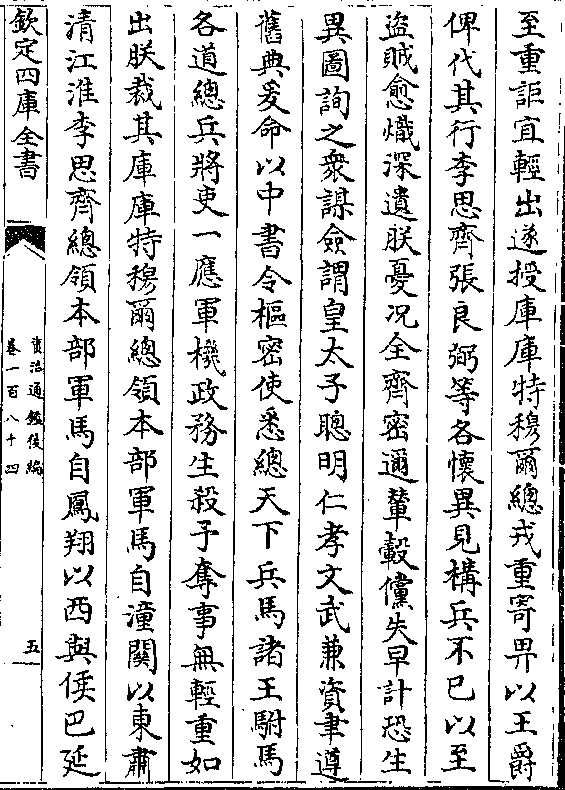 至重詎宜輕出遂授庫庫特穆爾總戎重寄畀以王爵
俾代其行李思齊張良弼等各懷異見構兵不已以至
盜賊愈熾深遺朕憂况全齊密邇輦轂儻失早計恐生
異圖詢之衆謀僉謂皇太子聰明仁孝文武兼資聿遵
舊典爰命以中書令樞密使悉總天下兵馬諸王駙馬
各道總兵將吏一應軍機政務生殺予奪事無輕重如
出朕裁其庫庫特穆爾總領本部軍馬自潼關以東肅
清江淮李思齊總領本部軍馬自鳳翔以西與侯巴延
欽定四庫全書
資治通鑑後編
卷一百八十四
五